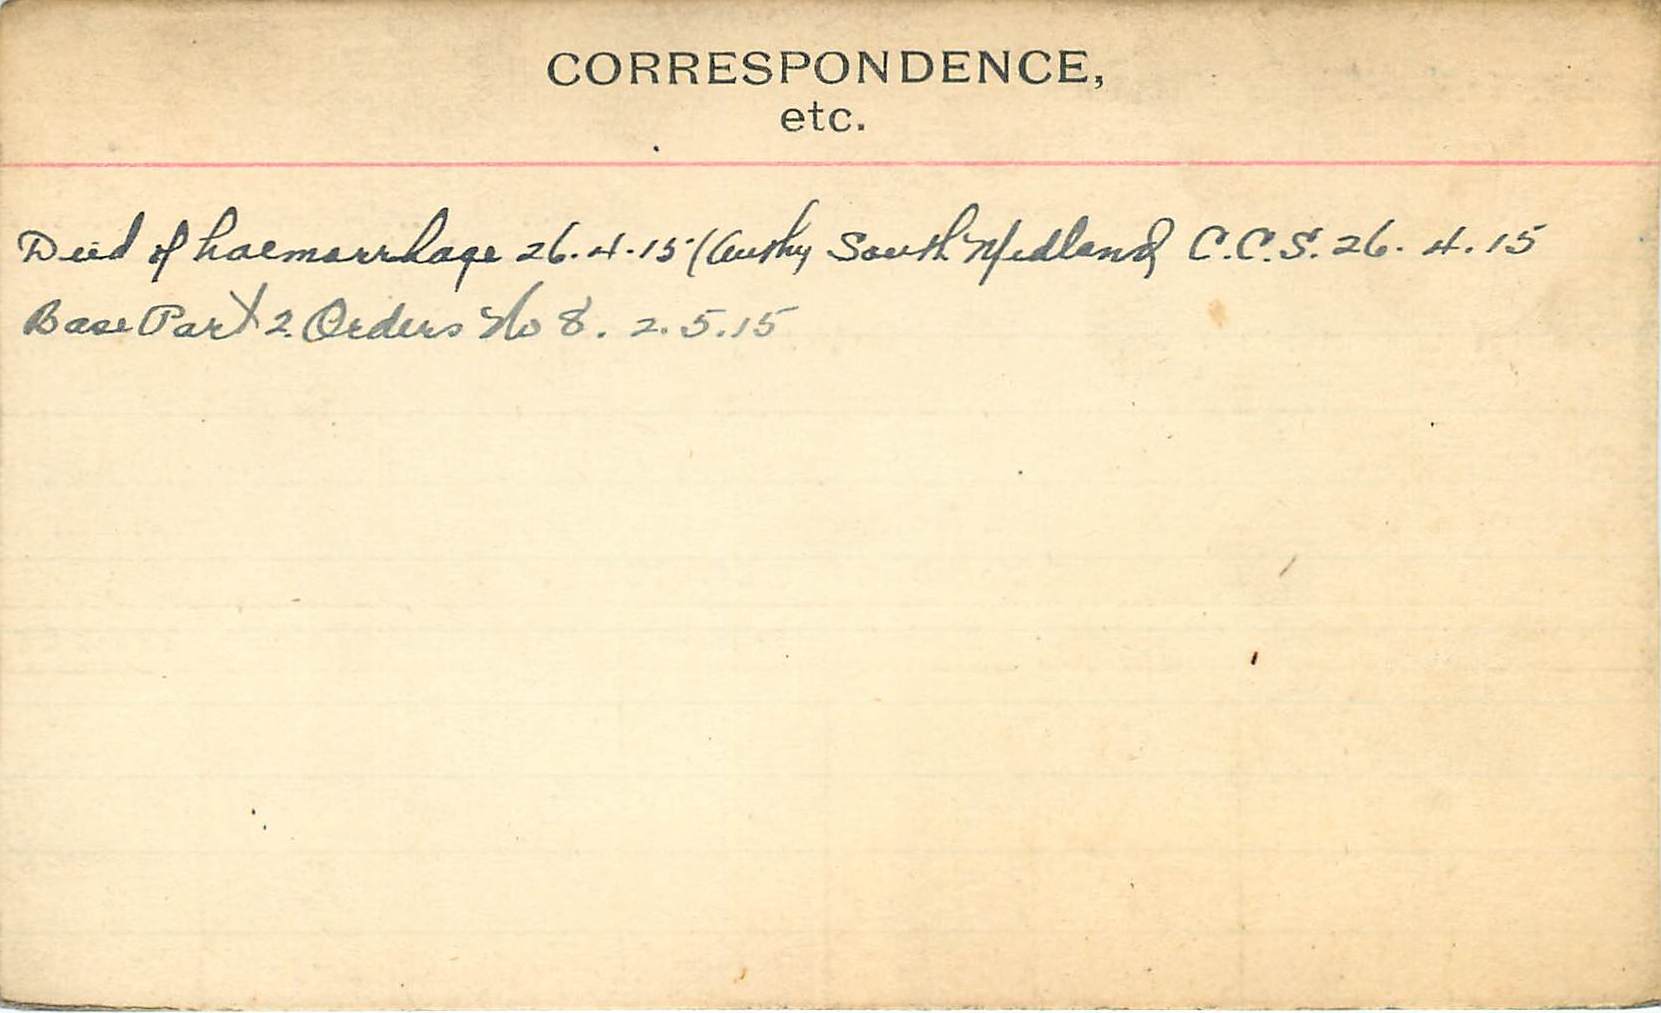 CORRESPONDENCE,
etc.
Died of haemorrhage 26.4.15 (Authy South Midland C.C.S. 26.4.15
Base Part 2 Orders No 8. 2.5.15